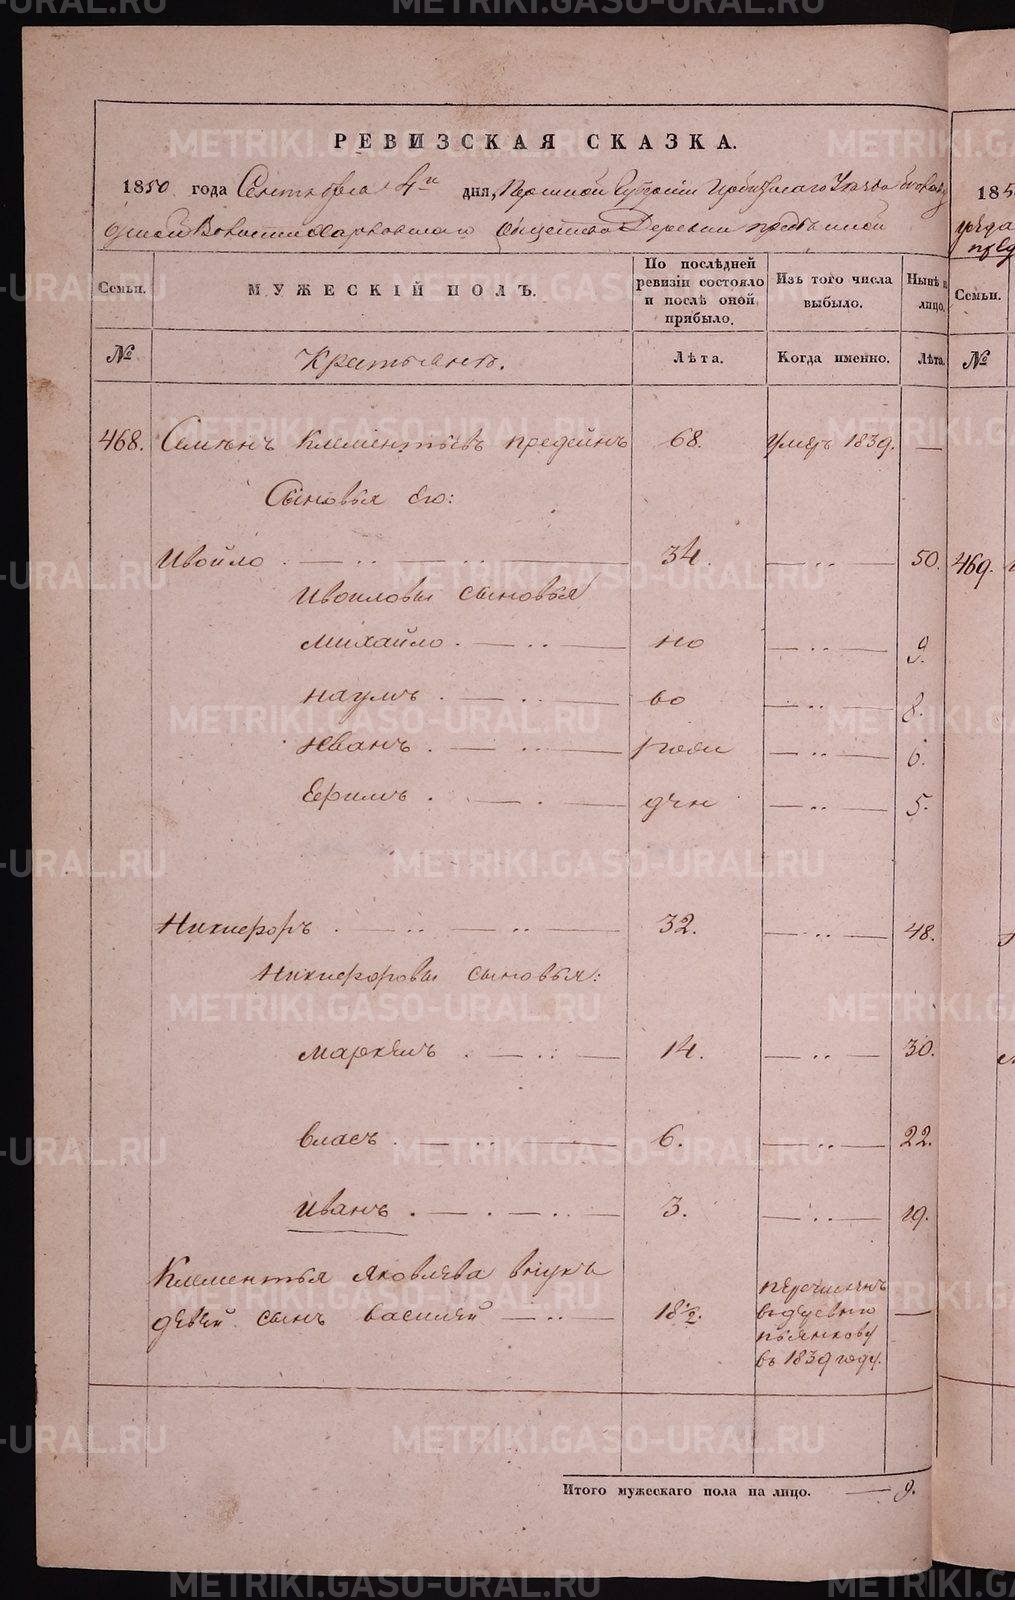 РЕВИЗСКАЯ СКАЗКА.
1850 года Сентября 4го дня, Пермской Губернии Ирбитскаго Уезда
Волости Харловскаго Общества Деревни
Семьи. МУЖЕСКІЙ ПОЛЪ. По послѣдней ревизіи состояло и послѣ оной прибыло. Изъ того числа выбыло. Нынѣ на лицо.
№ Крестьянъ. Лѣта. Когда именно. Лѣта.
468. Семенъ Клементьевъ предеинъ 68. Умеръ 1839. —
Сыновья его:
Ивойло 34. 50.
Ивоиловы сыновья
Михайло но 9.
Наумъ во 8.
Иванъ рож 6.
Ефимъ 5.
Никифоръ 32. 48.
Никифоровы сыновья:
Маркелъ 14. 30.
власъ 6. 22.
Иванъ 3. 19.
Клементья Яковлева внукъ
сынъ василей 18½. перечисленъ в деревню пьянкову въ 1839 году. —
Итого мужескаго пола на лицо. — 9.
185
Семьи.
№
469.
METRIKI.GASO-URAL.RU